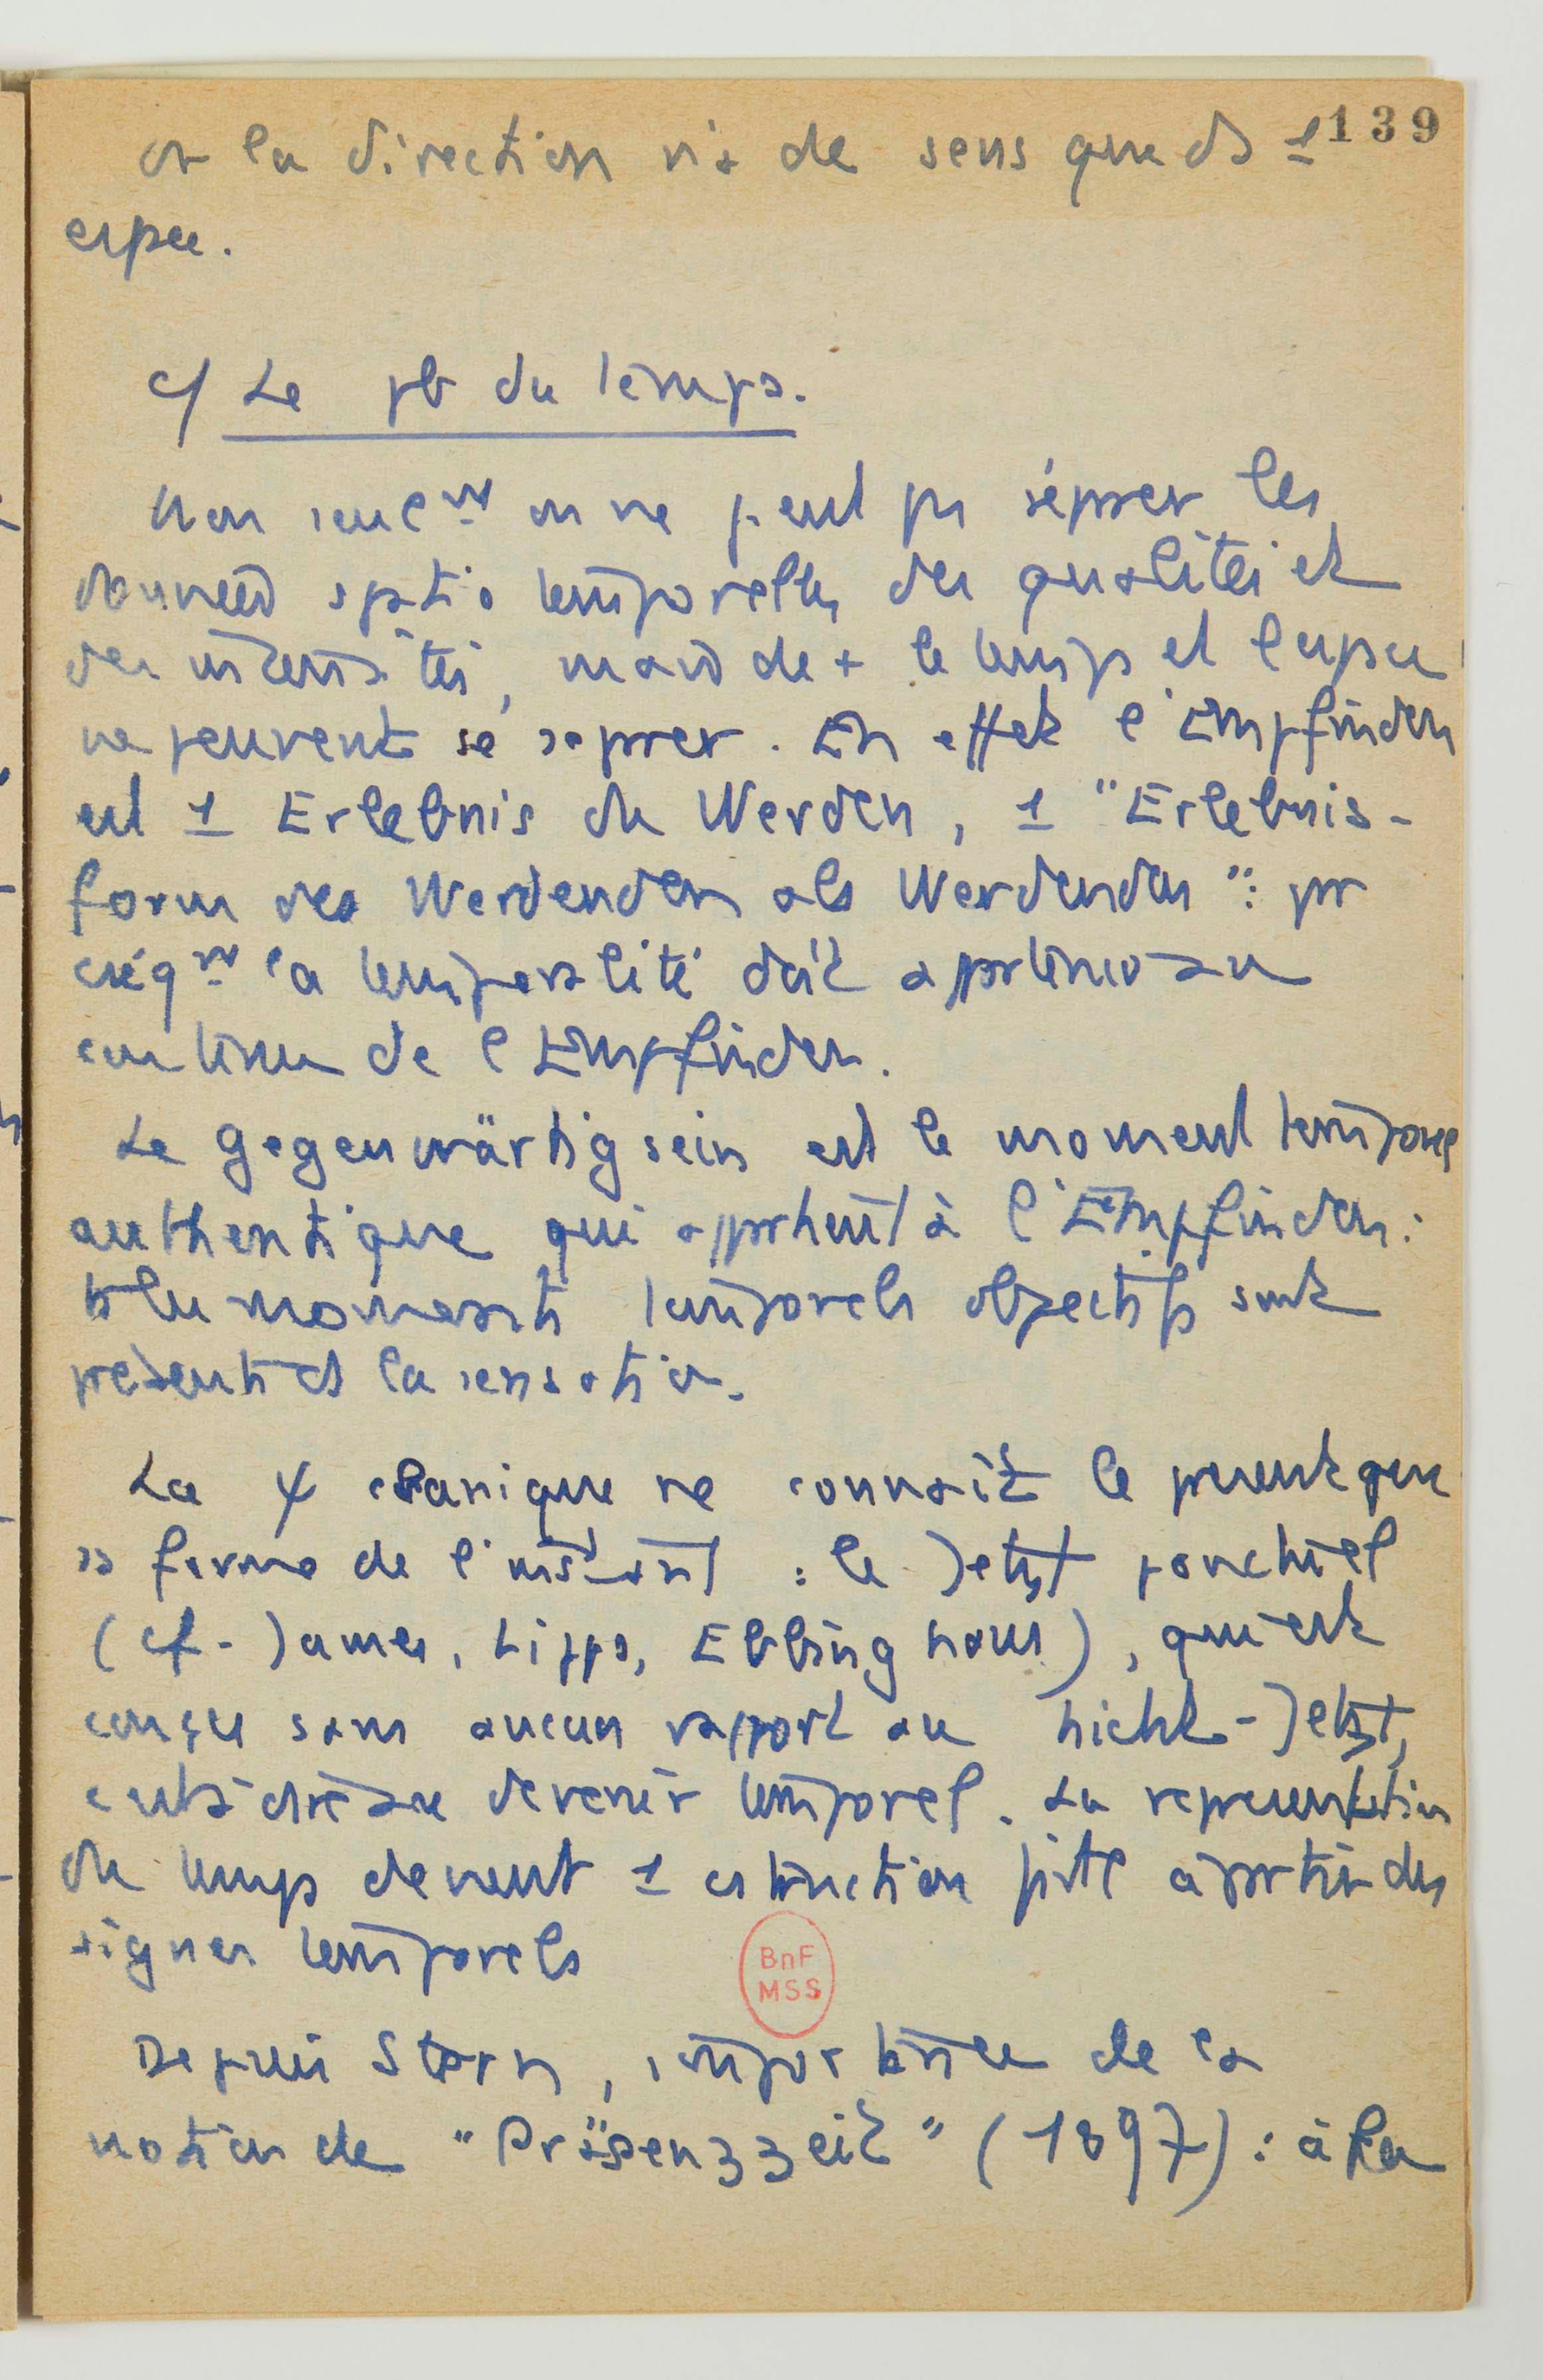 139
or la direction n'a de sens que ds 1
espce.
c/ Le pb du temps.
Non seulmt on ne peut pas séparer les
données spatio temporelles des qualités et
des intensités, mais de + le temps et l'espce
ne peuvent se séparer. En effet l'Empfinden
est 1 Erlebnis du Werden, 1 "Erlebnis-
form des Werdenden als Werdenden": pr
cséqnt la temporalité doit appartenir au
contenu de l'Empfinden.
Le Gegenwärtigsein est le moment temporel
authentique qui appartient à l'Empfinden:
ts les moments temporels objectifs sont
présents ds la sensation.
La ψ classique ne connaît le présent que
ss forme de l'instant : le Jetzt ponctuel
(cf. James, Lipps, Ebbinghaus), qui est
conçu sans aucun rapport au nicht-Jetzt,
c'est à dire au devenir temporel. La représentation
du temps devient 1 cstruction faite à partir des
signes temporels
BnF
MSS
Depuis Stern, importance de la
notion de "Präsenzzeit" (1897) : à la